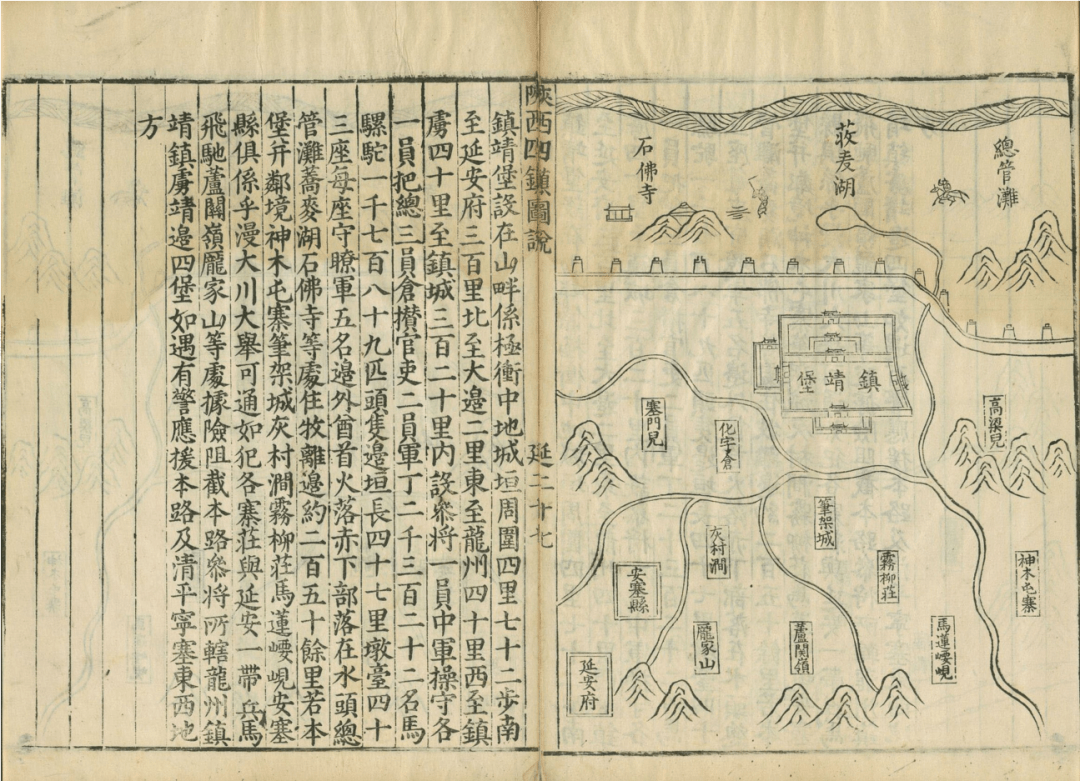 總管灘
荍麦湖
石佛寺
鎮靖堡
高梁見
塞門見
筆架城
灰村澗
霧柳莊
神木屯寨
安塞縣
龎家山
蘆関嶺
馬蓮崾峴
延安府
陝西四鎮圖說 延二十七
鎮靖堡設在山畔係極衝中地城垣周圍四里七十二歩南
至延安府三百里北至大邉二里東至龍州四十里西至鎮
虜四十里至鎮城三百二十里内設叅將一員中軍操守各
一員把總三員倉攢官吏二員軍丁二千三百二十二名馬
騾駝一千七百八十九匹頭隻邉垣長四十七里墩臺四十
三座每座守瞭軍五名邉外酋首火落赤下部落在水頭總
管灘蕎麥湖石佛寺等處住牧離邉約二百五十餘里若本
堡并鄰境神木屯寨筆架城灰村澗霧柳莊馬蓮崾峴安塞
縣俱係乎漫大川大舉可通如犯各寨莊與延安一帶兵馬
飛馳蘆關嶺龎家山等處據險阻截本路叅將所轄龍州鎮
靖鎮虜靖邉四堡如遇有警應援本路及清平寧塞東西地
方